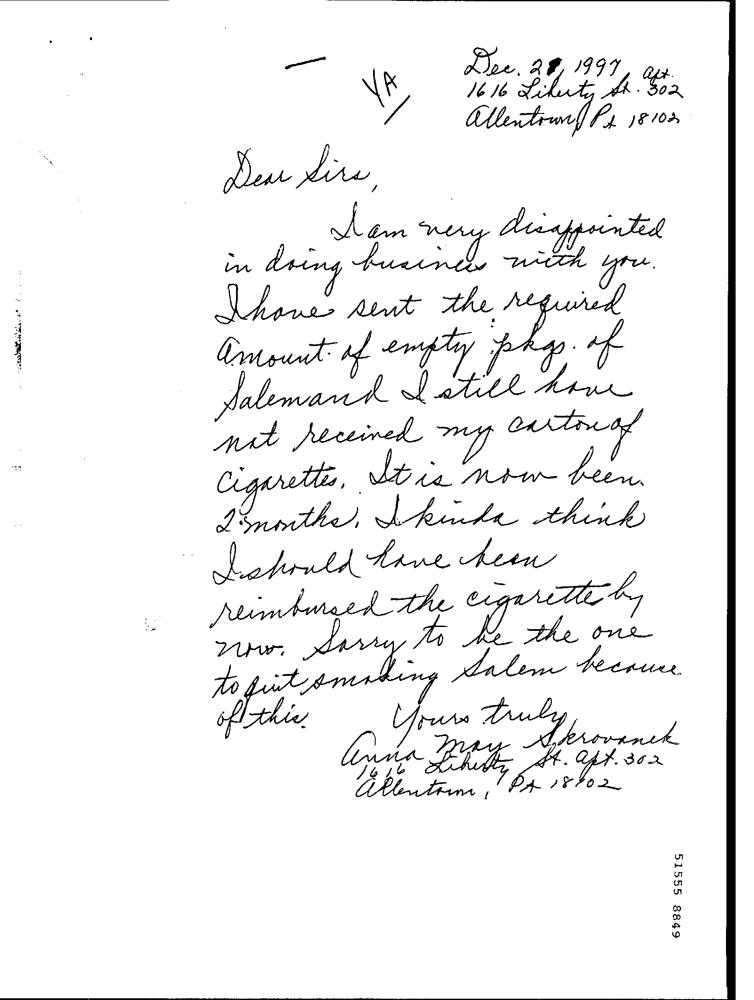 Dec. 27, 1997
YA
1616 Liberty St. Apt. 302
Allentown, PA 18102
Dear Sirs,
I am very disappointed
in doing business with you.
I have sent the required
amount of empty pkgs. of
Salem and I still have
not received my carton of
cigarettes. It is now been
2 months. I kinda think
I should have been
reimbursed the cigarettes by
now. Sorry to be the one
to quit smoking Salem because
of this.
Yours truly,
Anna May Skrovanek
1616 Liberty St. Apt. 302
Allentown, PA 18102
51555 8849